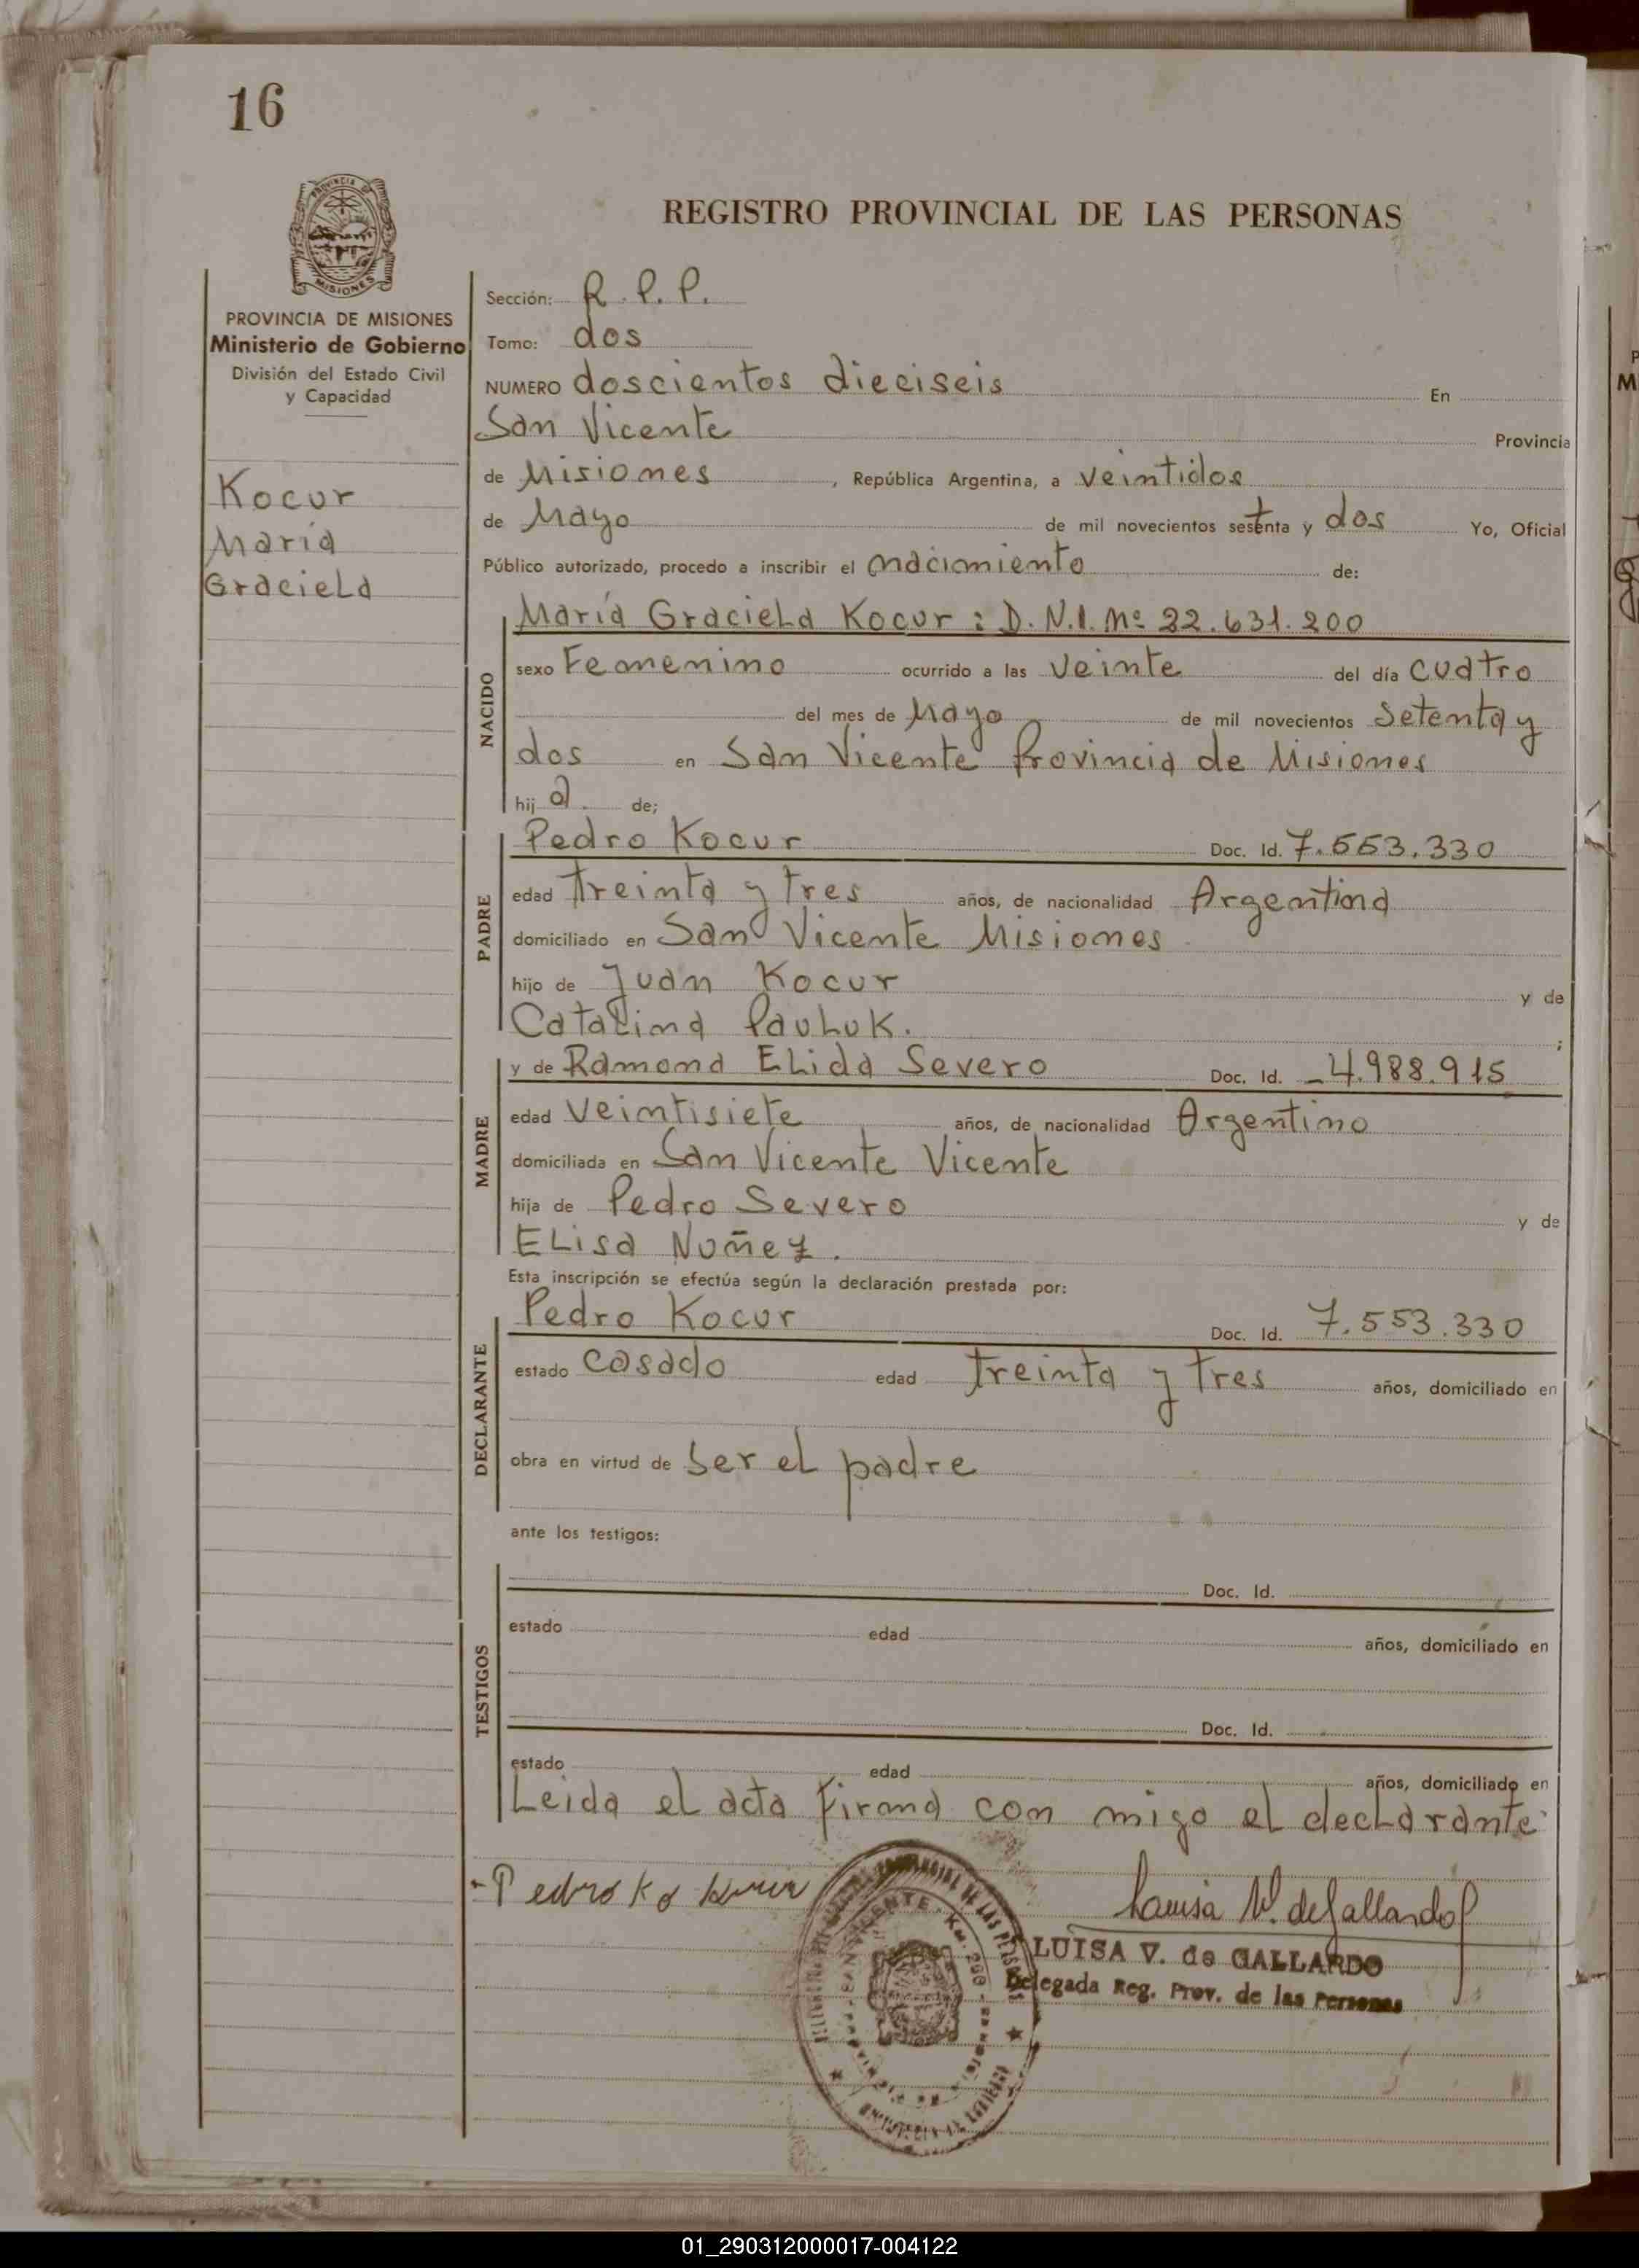 16
PROVINCIA DE
MISIONES
REGISTRO PROVINCIAL DE LAS PERSONAS
PROVINCIA DE MISIONES
Ministerio de Gobierno
División del Estado Civil
y Capacidad
Kocur
María
Graciela
Sección: R.P.P.
Tomo: dos
NUMERO doscientos dieciseis En
San Vicente Provincia
de Misiones, República Argentina, a veintidos
de Mayo de mil novecientos setenta y dos Yo, Oficial
Público autorizado, procedo a inscribir el nacimiento de:
NACIDO
María Graciela Kocur : D.N.I. Nº 22.631.200
sexo Femenino ocurrido a las veinte del día cuatro
del mes de Mayo de mil novecientos setenta y
dos en San Vicente Provincia de Misiones
hij a de;
PADRE
Pedro Kocur Doc. Id. 7.553.330
edad treinta y tres años, de nacionalidad Argentina
domiciliado en San Vicente Misiones
hijo de Juan Kocur y de
Catalina Pauluk. ;
MADRE
y de Ramona Elida Severo Doc. Id. 4.988.915
edad veintisiete años, de nacionalidad Argentino
domiciliada en San Vicente Vicente
hija de Pedro Severo y de
Elisa Nuñez.
Esta inscripción se efectúa según la declaración prestada por:
DECLARANTE
Pedro Kocur Doc. Id. 7.553.330
estado casado edad treinta y tres años, domiciliado en
obra en virtud de ser el padre
ante los testigos:
TESTIGOS
Doc. Id.
estado edad años, domiciliado en
Doc. Id.
estado edad años, domiciliado en
Leida el acta firma con migo el declarante
Pedro
Luisa V. de Gallardo
LUISA V. de GALLARDO
Delegada Reg. Prov. de las Personas
SAN VICENTE - Km.
DE LAS PERSONAS
01_290312000017-004122